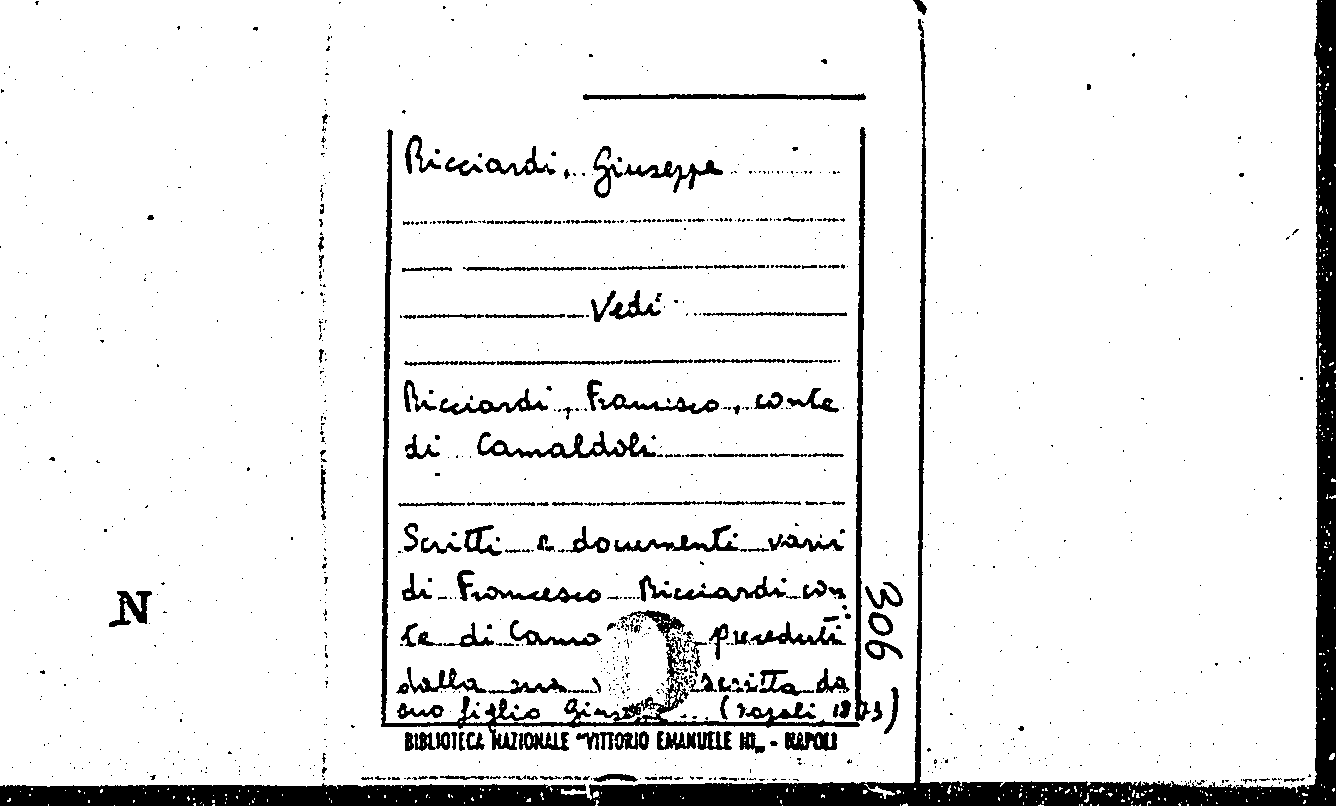 Ricciardi, Giuseppe
Vedi
Ricciardi, Francesco, conte
di Camaldoli
Scritti e documenti varii
di Francesco Ricciardi con
te di Cama preceduti
dalla sua scritta da
suo figlio Gius (Napoli, 1873)
306
N
BIBLIOTECA NAZIONALE "VITTORIO EMANUELE III„ - NAPOLI